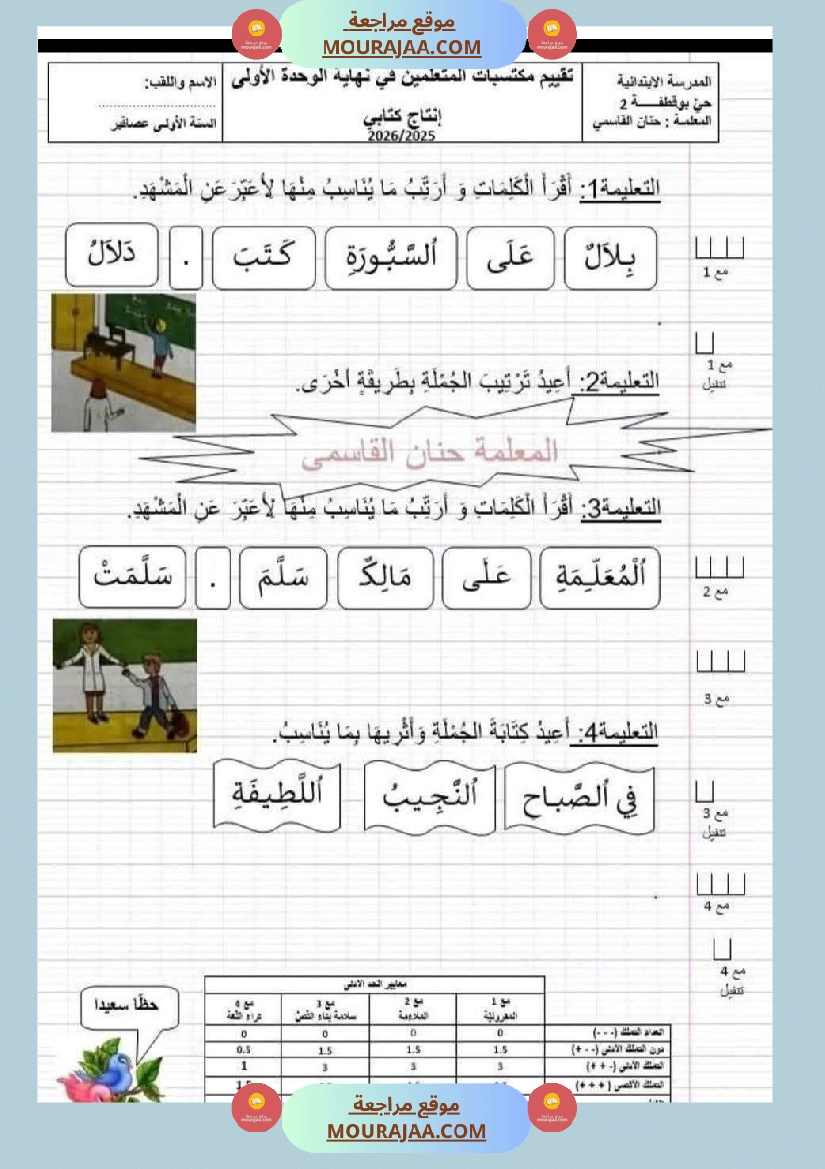 موقع مراجعة
MOURAJAA.COM
المدرسة الابتدائية
حيّ بوقطفة 2
المعلمة : حنان القاسمي
تقييم مكتسبات المتعلمين في نهاية الوحدة الأولى
إنتاج كتابي
2026/2025
الاسم واللقب:
السنة الأولى عصافير
التعليمة1: أَقْرَأُ الْكَلِمَاتِ وَ أُرَتِّبُ مَا يُنَاسِبُ مِنْهَا لِأُعَبِّرَ عَنِ الْمَشْهَدِ.
بِلاَلٌ عَلَى اَلسَّبُّورَةِ كَتَبَ . دَلاَلُ
مع 1
مع 1
تنفيل
التعليمة2: أُعِيدُ تَرْتِيبَ الجُمْلَةِ بِطَرِيقَةٍ أُخْرَى.
المعلمة حنان القاسمي
التعليمة3: أَقْرَأُ الْكَلِمَاتِ وَ أُرَتِّبُ مَا يُنَاسِبُ مِنْهَا لِأُعَبِّرَ عَنِ الْمَشْهَدِ.
اَلْمُعَلِّمَةِ عَلَى مَالِكٌ سَلَّمَ . سَلَّمَتْ
مع 2
مع 3
التعليمة4: أُعِيدُ كِتَابَةَ الجُمْلَةِ وَأُثْرِيهَا بِمَا يُنَاسِبُ.
فِي اَلصَّبَاحِ اَلنَّجِيبُ اَللَّطِيفَةِ
مع 3
تنفيل
مع 4
مع 4
تنفيل
حظّا سعيدا
معايير الحد الأدنى
مع 1 مع 2 مع 3 مع 4
المقروئية الملاءمة سلامة بناء النصّ ثراء اللّغة
انعدام التملك (- - -) 0 0 0 0
دون التملك الأدنى (+ - -) 1.5 1.5 1.5 0.5
التملك الأدنى (+ + -) 3 3 3 1
التملك الأقصى (+ + +)
موقع مراجعة
MOURAJAA.COM